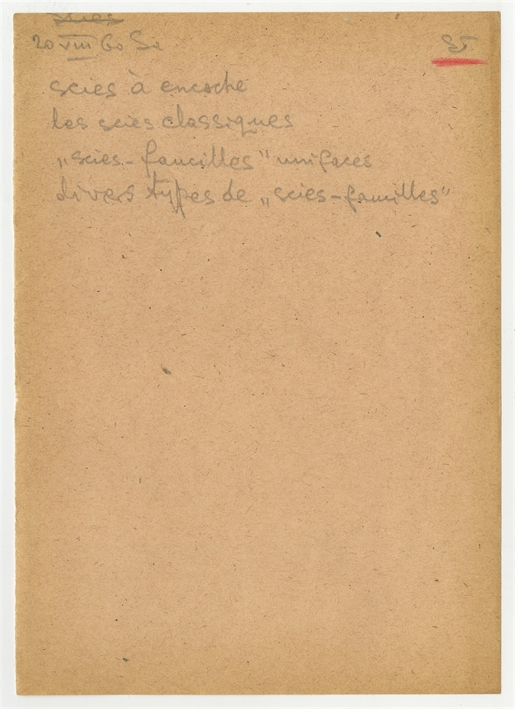 scies
20 VIII 60 Sa
scies à encoche
les scies classiques
„scies-faucilles" unifaces
divers types de „scies-faucilles"